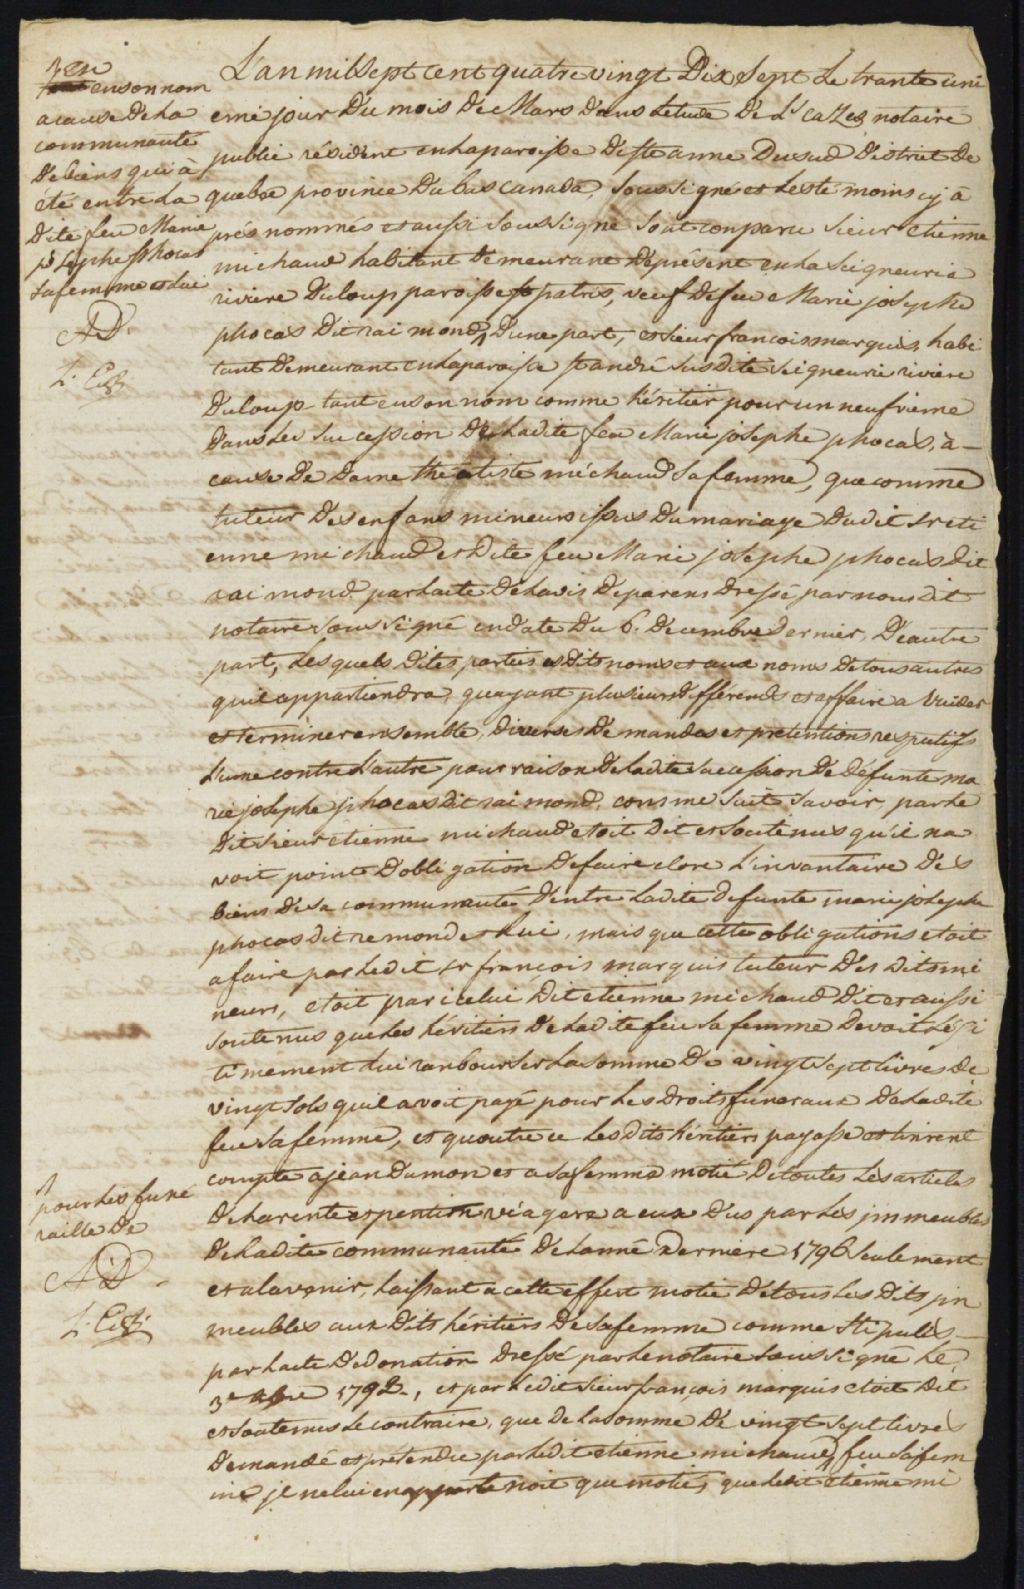 en
en son nom
a cause de la
communauté
de biens qui à
été entre la
dite feu Marie
josephe phocas
sa femme et lui
A D.
L. C.
L'an mil sept cent quatre vingt Dix Sept le trante uni
eme jour Du mois De Mars Dans letude De Ls cazes notaire
public résident en la paroisse De ste anne Du sud District De
quebec province Du bas canada, Soussigné et les té moins cy à
prés nommés et aussi Soussigné Sont conparu Sieur etienne
michaud habitant Demeurant De présent en la Seigneurie
riviere Du loup paroisse st patris, veuf De feu Marie josephe
phocas Dit rai mond, D'une part, et sieur francois marquis, habi
tant Demeurant en la paroisse st andré Susdite Seigneurie riviere
Du loup tant en son nom comme héritier pour un neufvieme
Dans les Succession De ladite feu Marie josephe phocas, à
cause De Dame théotiste michaud Sa femme, que comme
tuteur Des enfans mineurs issus Du mariage Dudit Sr eti
enne michaud et Dite feu Marie josephe phocas Dit
rai mond par lacte De lavis De parens Dressé par nous Dit
notaire Sous Signé en date Du 6. Décembre Dernier, D'eautre
part, Les quels Dites parties es Dits noms et aux noms De tous autres
qu'il appartiendra, qu'ayant plusieurs différends et affaire a Vuider
et terminer ensemble, Diverses Demandes et prétentions respectifs
L'une contre L'autre pour raison De ladite Succession De Défunte ma
rie josephe phocas Dit rai mond, comme Suit Savoir, par le
Dit Sieur etienne michaud etoit Dit et Soutenus qu'il na
voit point D'obligation De faire clore L'inventaire Des
biens De Sa communauté D'entre ladite Defunte marie josephe
phocas Dit remond et lui, mais que cette obligations etoit
a faire par le dit Sr francois marquis tuteur Des Dits mi
neurs, etoit par icelui Dit etienne michaud Dit et aussi
Soutenus que les héritiers De ladite feu Sa femme Devoit légi
timement Lui rembourser la Somme De vingt Sept livres De
vingt Sols qu'il avoit payé pour Les Droits funeraux De ladite
feu Sa femme, et qu'outre ce Les Dits héritiers payasse et tinrent
compte a jean Dumon et a Sa femme motié De toutes Les articles
De la rente et pention viagere a eux Dus par les jmmeubles
De ladite communauté De lanné Derniere 1796 Seulement
et a lavenir, laissant a cette effest motié De tous Les Dits jm
meubles aux Dits héritiers De Sa femme comme Stipulés
par lacte De Donation Dressé par le notaire Sous Signé Le
3e 1792, et par le dit Sieur françois marquis etoit Dit
et Soutenus Le contraire, que De la Somme De vingt Sept livres
Demandé et prétendue par le dit etienne michaud, feu Sa fem
me jl ne lui en apparte noit que motié, que le dit étienne mi
pour les funé
raille de
A D.
L. C.